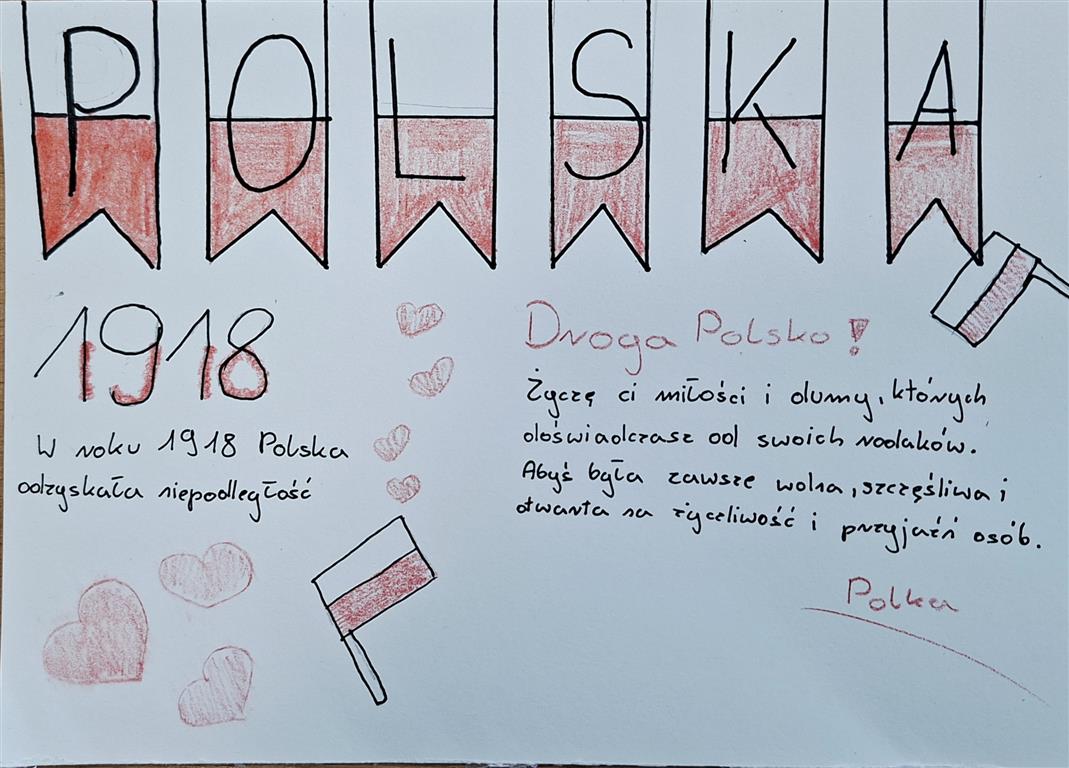 POLSKA
1918
W roku 1918 Polska
odzyskała niepodległość
Droga Polsko!
Życzę ci miłości i dumy, których
doświadczasz od swoich rodaków.
Abyś była zawsze wolna, szczęśliwa i
otwarta na życzliwość i przyjaźń osób.
Polka